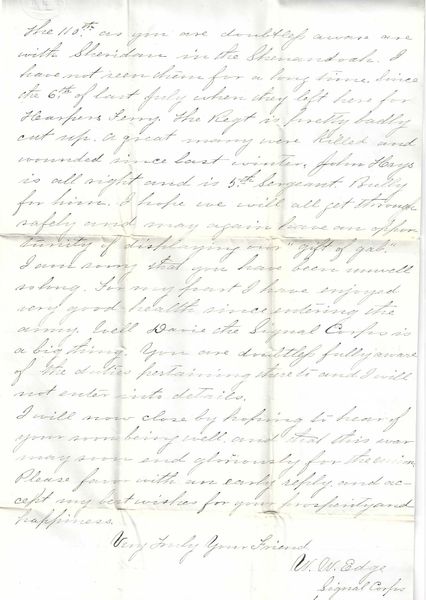 The 110th as you are doubtless aware are
with Sheridan in the Shenandoah. I
have not seen them for a long time. Since
the 6th of last July when they left here for
Harpers Ferry. The Regt is pretty badly
cut up. A great many were Killed and
wounded since last winter. John Hays
is all right and is 5th Sergeant Bully
for him. I hope we will all get through
safely and may again have an oppor
tunity of displaying our "gift of gab."
I am sorry that you have been unwell
so long. For my part I have enjoyed
very good health since entering the
army. Well Davie the Signal Corps is
a big thing. You are doubtless fully aware
of the duties pertaining thereto and I will
not enter into details.
I will now close by hoping to hear of
your soon being well and that this war
may soon end gloriously for the union.
Please favor with an early reply and ac-
cept my best wishes for your prosperity and
happiness.
Very Truly Your Friend
W. W. Edge
Signal Corps